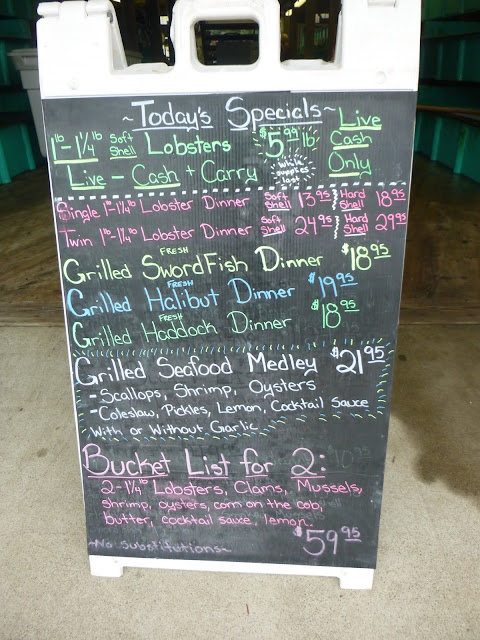 ~Today's Specials~
1lb - 1 1/4 lb Soft Shell Lobsters $5.99 lb Live Cash Only
Live - Cash + Carry while supplies last
Single 1-1 1/4 lb Lobster Dinner Soft Shell 13.95 Hard Shell 18.95
Twin 1lb-1 1/4 lb Lobster Dinner Soft Shell 24.95 Hard Shell 29.95
Grilled Fresh SwordFish Dinner $18.95
Grilled Fresh Halibut Dinner $19.95
Grilled Fresh Haddock Dinner $18.95
Grilled Seafood Medley $21.95
- Scallops, Shrimp, Oysters
- Coleslaw, Pickles, Lemon, Cocktail Sauce
With or Without Garlic
Bucket List for 2:
2-1 1/4 lb Lobsters, Clams, Mussels,
shrimp, oysters, corn on the cob,
butter, cocktail sauce, lemon.
$59.95
~No Substitutions~